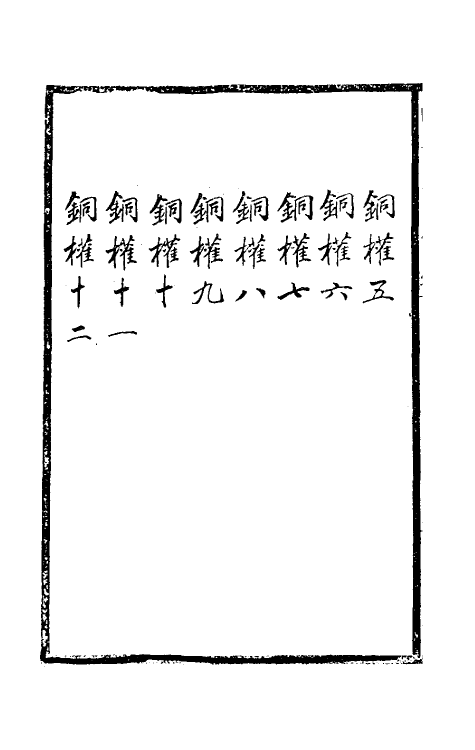 銅權五
銅權六
銅權七
銅權八
銅權九
銅權十
銅權十一
銅權十二